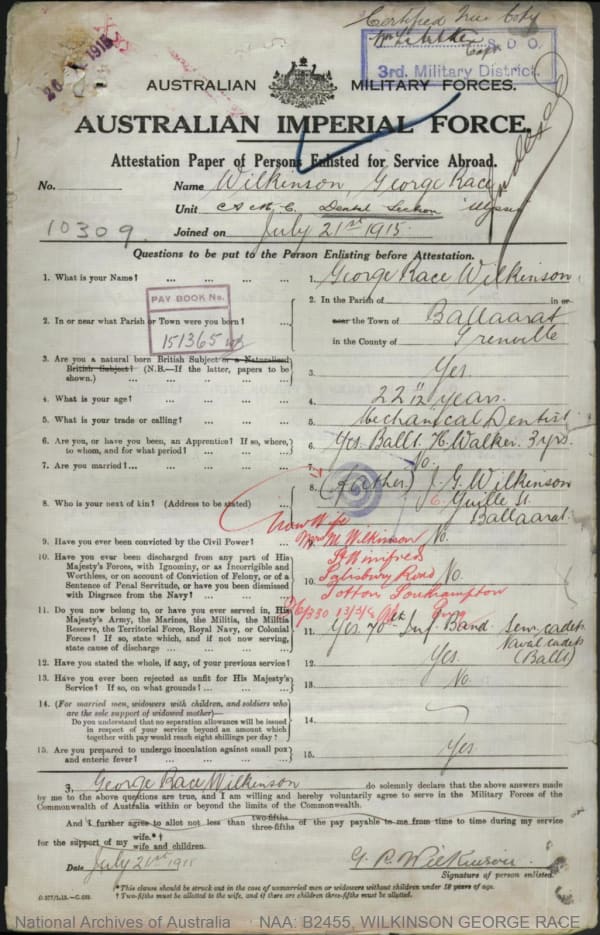 Certified True Copy
20 1915
S.D.O.
3rd. Military District.
AUSTRALIAN MILITARY FORCES.
AUSTRALIAN IMPERIAL FORCE.
Attestation Paper of Persons Enlisted for Service Abroad.
No. Name Wilkinson, George Race
Unit Dental Section
10309. Joined on July 21st 1915.
Questions to be put to the Person Enlisting before Attestation.
1. What is your Name? ... 1. George Race Wilkinson.
PAY BOOK No.
151365
2. In or near what Parish or Town were you born? ... 2. In the Parish of in or
near the Town of Ballaarat
in the County of Grenville
3. Are you a natural born British Subject or a Naturalized
British Subject? (N.B.—If the latter, papers to be
shown.) ... 3. Yes.
4. What is your age? ... 4. 22 years.
5. What is your trade or calling? ... 5. Mechanical Dentist.
6. Are you, or have you been, an Apprentice? If so, where,
to whom, and for what period? ... 6. Yes. Ballt. H. Walker. 3 yrs.
7. Are you married? ... 7. No.
8. Who is your next of kin? (Address to be stated) ... 8. (Father) J. G. Wilkinson
Guille St.
Ballaarat.
Now Wife
Mrs M. Wilkinson
St Winifreds
Salisbury Road
Totton Southampton
Eng
9. Have you ever been convicted by the Civil Power? ... No.
10. Have you ever been discharged from any part of His
Majesty's Forces, with Ignominy, or as Incorrigible and
Worthless, or on account of Conviction of Felony, or of a
Sentence of Penal Servitude, or have you been dismissed
with Disgrace from the Navy? ... 10. No.
11. Do you now belong to, or have you ever served in, His
Majesty's Army, the Marines, the Militia, the Militia
Reserve, the Territorial Force, Royal Navy, or Colonial
Forces? If so, state which, and if not now serving,
state cause of discharge ... 11. Yes. 70th Inf. Band. Sen. cadets
Naval cadets
(Ballt)
12. Have you stated the whole, if any, of your previous service? 12. Yes.
13. Have you ever been rejected as unfit for His Majesty's
Service? If so, on what grounds? ... 13. No.
14. (For married men, widowers with children, and soldiers who
are the sole support of widowed mother)—
Do you understand that no separation allowance will be issued
in respect of your service beyond an amount which
together with pay would reach eight shillings per day? 14.
15. Are you prepared to undergo inoculation against small pox
and enteric fever? ... 15. Yes.
I, George Race Wilkinson do solemnly declare that the above answers made
by me to the above questions are true, and I am willing and hereby voluntarily agree to serve in the Military Forces of the
Commonwealth of Australia within or beyond the limits of the Commonwealth.
And I further agree to allot not less than two-fifths
three-fifths of the pay payable to me from time to time during my service
for the support of my wife.*†
wife and children.
Date July 21st 1915 G. R. Wilkinson.
Signature of person enlisted.
* This clause should be struck out in the case of unmarried men or widowers without children under 18 years of age.
† Two-fifths must be allotted to the wife, and if there are children three-fifths must be allotted.
National Archives of Australia NAA: B2455, WILKINSON GEORGE RACE